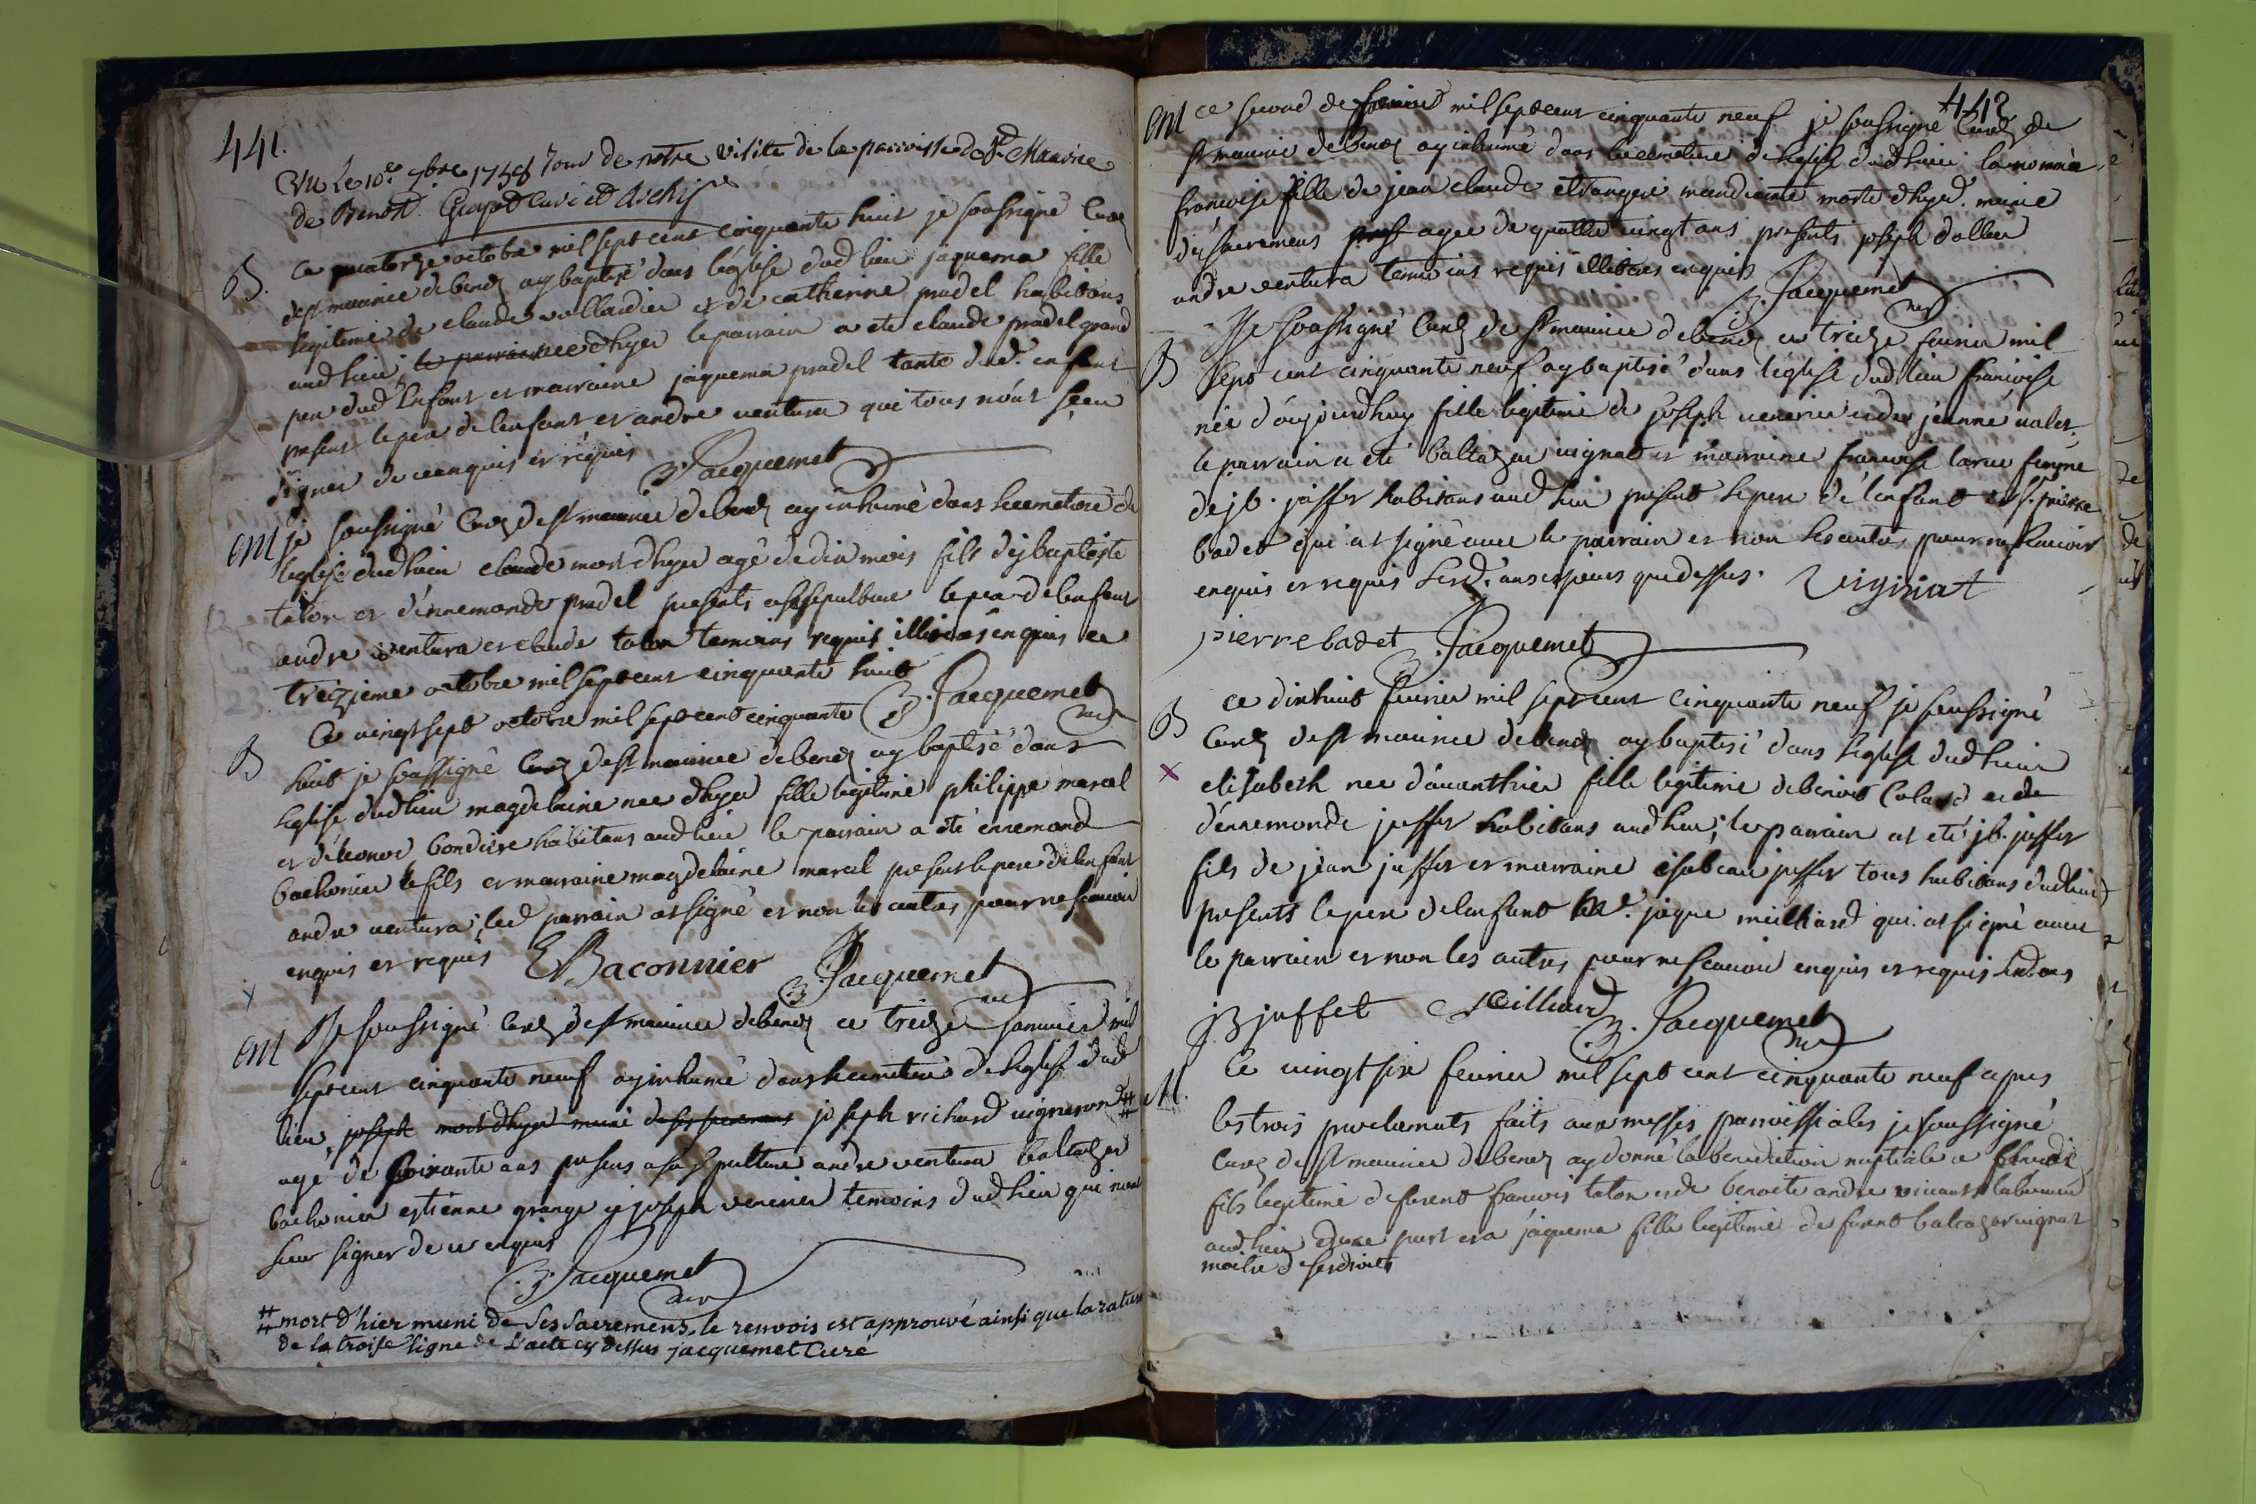 441.
Vu le 10e 7bre 1758 Jour de notre visite de la parroisse de St Maurice
de Benost. Curé et Archip
B. Ce quatorze octobre mil sept cent cinquante huit je soussigné Curé
de st maurice de benoz ay baptisé dans l'église dud lieu jaquema fille
legitime de claude vullaidier et de catherine pradel habitans
aud lieu, le parrain nee d'hyer le parrain a eté claude pradel grand
pere dud Enfant et marraine jaquema pradel tante dud. enfant
present le pere de lenfant et andre ventura qui tous n'ónt sçeu
signer de ce enquis et réquis B. Jacquemet
Ent je soussigné Curé de st maurice de benoz ay inhumé dans le cemetiere de
l'eglise dud lieu claude mort d'hyer agé de dix mois fils de j baptiste
talon et d'ennemonde pradel presents a sa sepulture le pere de lenfant
andre ventura et claude talon temoins requis illiteres enquis ce
treizieme octobre mil sept cent cinquante huit B. Jacquemet curé
B Ce vingt sept octobre mil sept cent cinquante
huit je soussigné Curé de st maurice de benoz ay baptisé dans
leglise dud lieu magdelaine nee d'hyer fille legitime philippe marcel
et d'éleonor bondire habitans aud lieu le parrain a été ennemond
bachonier le fils et marraine magdelaine marcel present le pere de lenfant
andre ventura; led parrain at signé et non les autres pour ne scavoir
enquis et requis EBaconnier B. Jacquemet curé
x
Ent Je soussigné Curé de st maurice de benoz ce treize janvier mil
sept cent cinquante neuf ay inhumé dans le cemetiere de leglise dud
lieu joseph mort d'hyer muni de ses sacremens joseph richard vigneron #
agé de soixante ans presens a sa sepulture andre ventura baltazar
bachonier estienne grange et joseph venerier temoins dud lieu qui n'ont
sceu signer de ce enquis
B. Jacquemet curé
# mort d'hier muni de ses sacremens. le renvois est approuvé ainsi que la rature
de la troise ligne de L'acte cy dessus jacquemet Curé
442
Ent ce second de fevrier mil sept cent cinquante neuf je soussigné Curé de
st maurice de benoz ay inhumé dans le cemetiere de leglise dud lieu la nomée
francoise fille de jean claude etrangere mandiante morte d'hyer. munie
des sacremens agee de quattre vingt ans presents joseph dallier
andre ventura temoins requis illiteres enquis B. Jacquemet curé
B Je soussigné Curé de st maurice de benoz ce treize fevrier mil
sept cent cinquante neuf ay baptisé dans l'église dud lieu francoise
née d'aujourdhuy fille legitime de joseph venerier et de jeanne valet.
le parrain a eté baltazar vignat et marraine francoise larue femme
de jb. juffet habitans aud lieu present le pere de lenfant et sr. pierre
badet qui at signé avec le parrain et non les autres, pour ne scavoir
enquis et requis les d. ans et jours que dessus. Vigniat
pierre badet B. Jacquemet
B ce dixhuit fevrier mil sept cent cinquante neuf je soussigné
Curé de st maurice de benoz ay baptisé dans leglise dud lieu
x elisabeth nee d'avanthier fille legitime de benoit Coland et de
d'ennemonde juffet habitans aud lieu; le parrain at eté jb. juffet
fils de jean juffet et marraine ejsabeau juffet tous habitans dud lieu
presents le pere de lenfant Mr. jaque meilliard qui at signé avec
le parrain et non les autres pour ne scavoir enquis et requis
jB juffet Meilliard B. Jacquemet curé
M. Ce vingt six fevrier mil sept cent cinquante neuf apres
les trois proclamats faits aux messes parroissiales je soussigné
Curé de st maurice de benoz ay donné la benediction nuptiale a
fils legitime de furent francois talon et de benoite andre vivants laboureur
aud. lieu d'une part et a jaquema fille legitime de furent baltazar vignat
maitre de ses droits